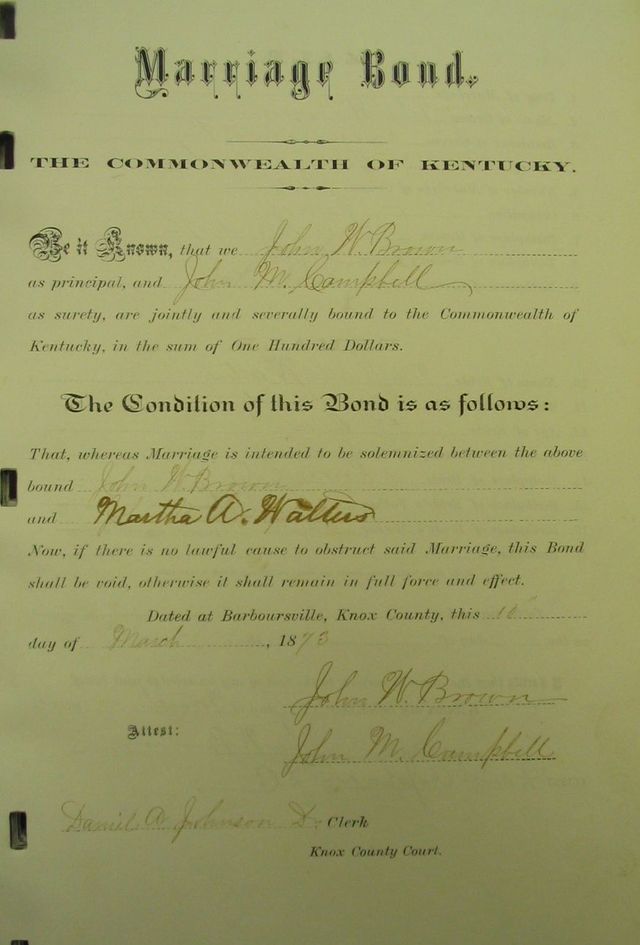 Marriage Bond.
THE COMMONWEALTH OF KENTUCKY.
Be it Known, that we John W. Brown
as principal, and John M. Campbell
as surety, are jointly and severally bound to the Commonwealth of
Kentucky, in the sum of One Hundred Dollars.
The Condition of this Bond is as follows:
That, whereas Marriage is intended to be solemnized between the above
bound John W. Brown
and Martha A. Walters
Now, if there is no lawful cause to obstruct said Marriage, this Bond
shall be void, otherwise it shall remain in full force and effect.
Dated at Barboursville, Knox County, this
day of March, 1873
John W. Brown
Attest:
John M. Campbell
Daniel A Johnson D. Clerk
Knox County Court.